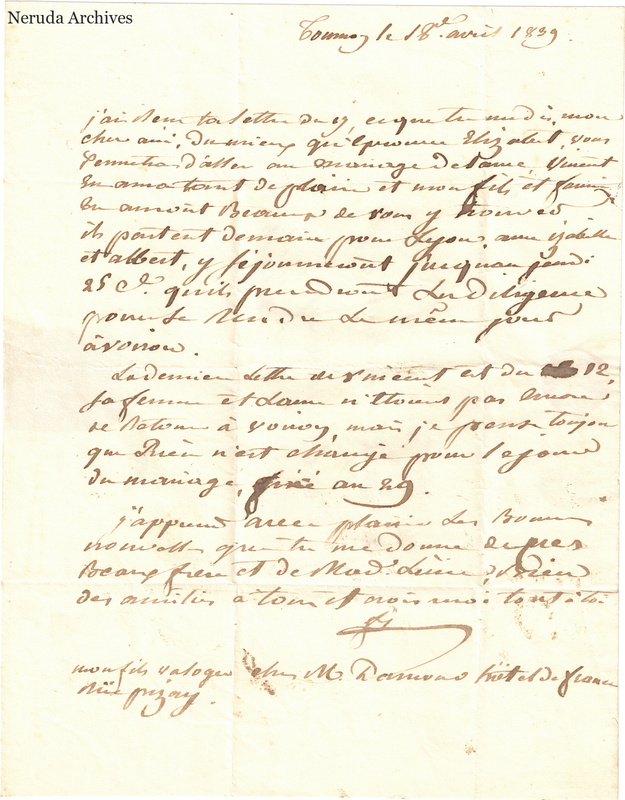 Neruda Archives
Tournon le 18 avril 1839.
j'ai Recu ta lettre du 9, ce que tu me dis, mon
cher ami, du mieux qu'éprouve Elizabet, vous
permettra d'aller au mariage de Laure. Vincent
En aura tant de plaisir et mon fils et
En auront Beaucoup de vous y trouver
ils partent demain pour Lyon, avec izabelle
et albert, y sejourneront jusquau jeudi
25 Ct. qu'ils prendront La Diligence
pour se Rendre Le même jour
à voiron.
La dernier Lettre de vincent est du 12,
sa femme et Laure n'etoient pas Encore
de Retour à Voiron, mais je pense toujour
que Rien n'est changé pour le jour
du mariage, fixé au 29.
j'apprend avec plaisir Les Bonnes
nouvelles que tu me donne de mes
Beaux frere et de Made. Bien
des amitiés à tous et crois moi tout à toi
mon fils va loger chez M. hotel de france
Rue pizay.